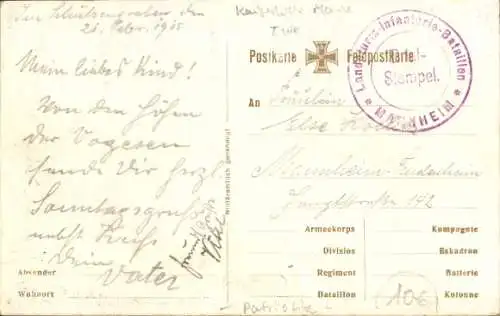 Im Schützengraben den
21. Febr. 1915
Mein liebes Kind!
Von den Höhen
der Vogesen
sende Dir herzl.
Sonntagsgruss
nebst Kuss
Dein
Vater
Absender
Wohnort
Postkarte
Feldpostkarte
Landsturm-Infanterie-Bataillon
Stempel.
MANNHEIM
An Fräulein
Else
Mannheim-Feudenheim
Hauptstrasse 142
Armeekorps
Kompagnie
Division
Eskadron
Regiment
Batterie
Bataillon
Kolonne
106